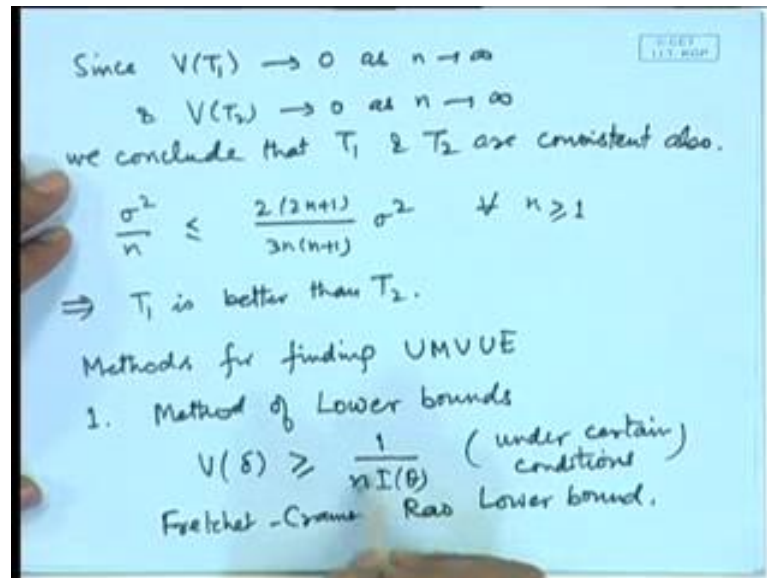 Since V(T₁) → 0 as n → ∞
& V(T₂) → 0 as n → ∞
we conclude that T₁ & T₂ are consistent also.
σ²/n ≤ 2(2n+1)/3n(n+1) σ² ∀ n ≥ 1
⇒ T₁ is better than T₂.
Methods for finding UMVUE
1. Method of Lower bounds
V(δ) ≥ 1/nI(θ) (under certain conditions)
Fretchet - Crame Rao Lower bound.